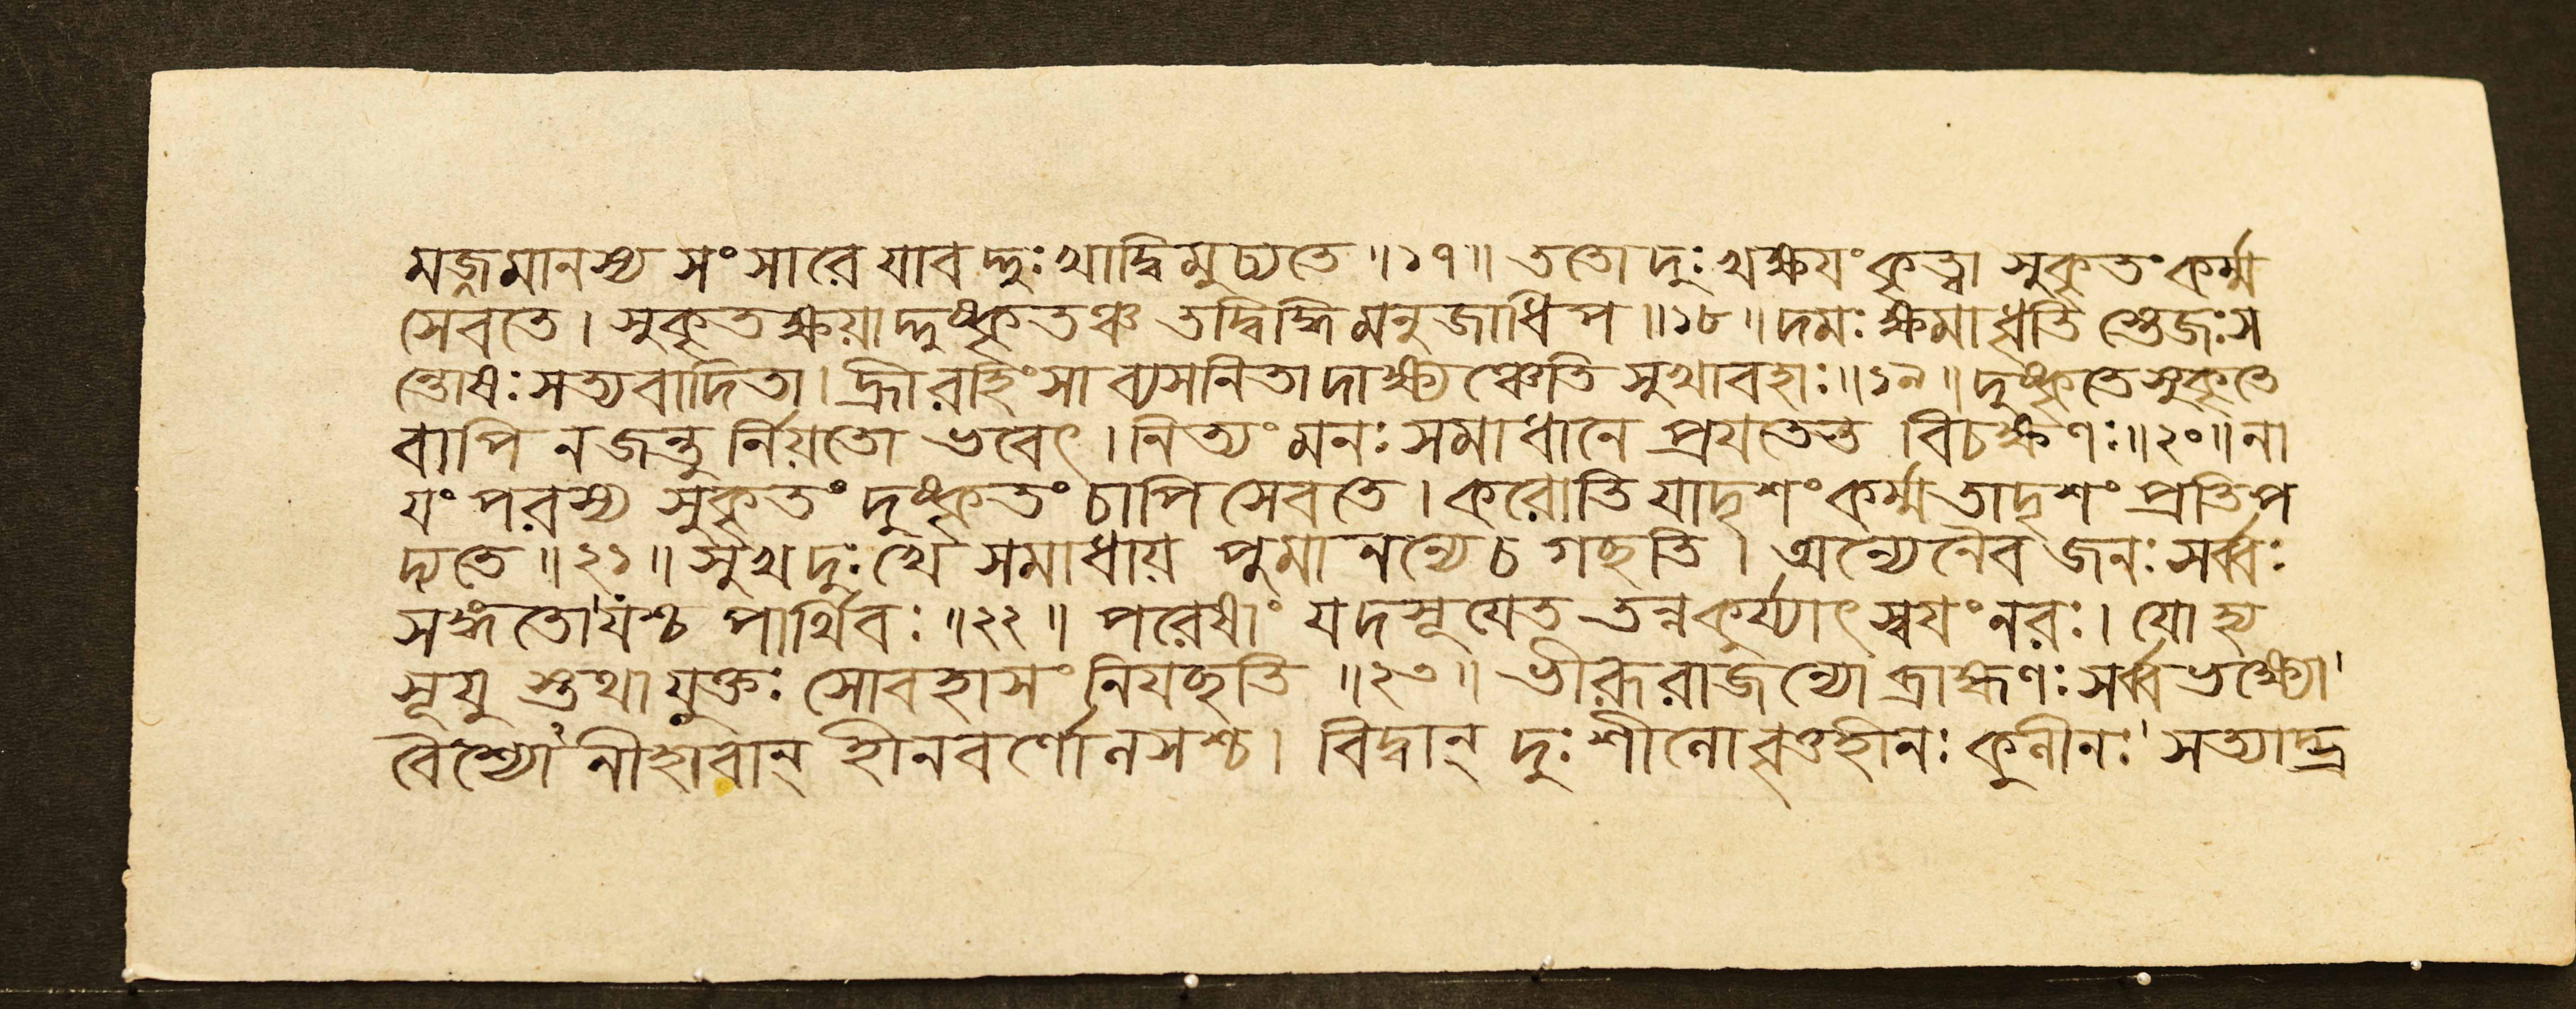 মজ্জমানস্য সংসারে যাবদ্দুঃখাদ্বিমুচ্যতে ॥১৭॥ ততো দুঃখক্ষয়ং কৃত্বা সুকৃতং কর্ম্ম
সেবতে । সুকৃতক্ষয়াদ্দুষ্কৃতঞ্চ তদ্বিদ্ধি মনুজাধিপ ॥১৮॥ দমঃ ক্ষমা ধৃতি স্তেজঃ স
ন্তোষঃ সত্যবাদিতা । হ্রীরহিংসা ব্যসনিতা দাক্ষ্যঞ্চেতি সুখাবহাঃ ॥১৯॥ দুষ্কৃতে সুকৃতে
বাপি ন জন্তু র্নিয়তো ভবেৎ । নিত্যং মনঃ সমাধানে প্রযতেত বিচক্ষণঃ ॥২০॥ না
যং পরস্য সুকৃতং দুষ্কৃতং চাপি সেবতে । করোতি যাদৃশং কর্ম্ম তাদৃশং প্রতিপ
দ্যতে ॥২১॥ সুখদুঃখে সমাধায় পুমানন্যেচ গচ্ছতি । অন্যেনৈব জনঃ সর্ব্বঃ
সঙ্গতো যশ্চ পার্থিবঃ ॥২২॥ পরেষাং যদসূযেত তন্নকুর্য্যাৎ স্বয়ং নরঃ । যো হ্য
সূযু স্তথা যুক্তঃ সোবহাসং নিযচ্ছতি ॥২৩॥ ভীরূ রাজন্যো ব্রাহ্মণঃ সর্ব্বভক্ষ্যো
বৈশ্যো নীহাবান্ হীনবর্ণোলসশ্চ । বিদ্বান্ দুঃশীলো বৃত্তহীনঃ কুলীনঃ সত্যাদ্ভ্র